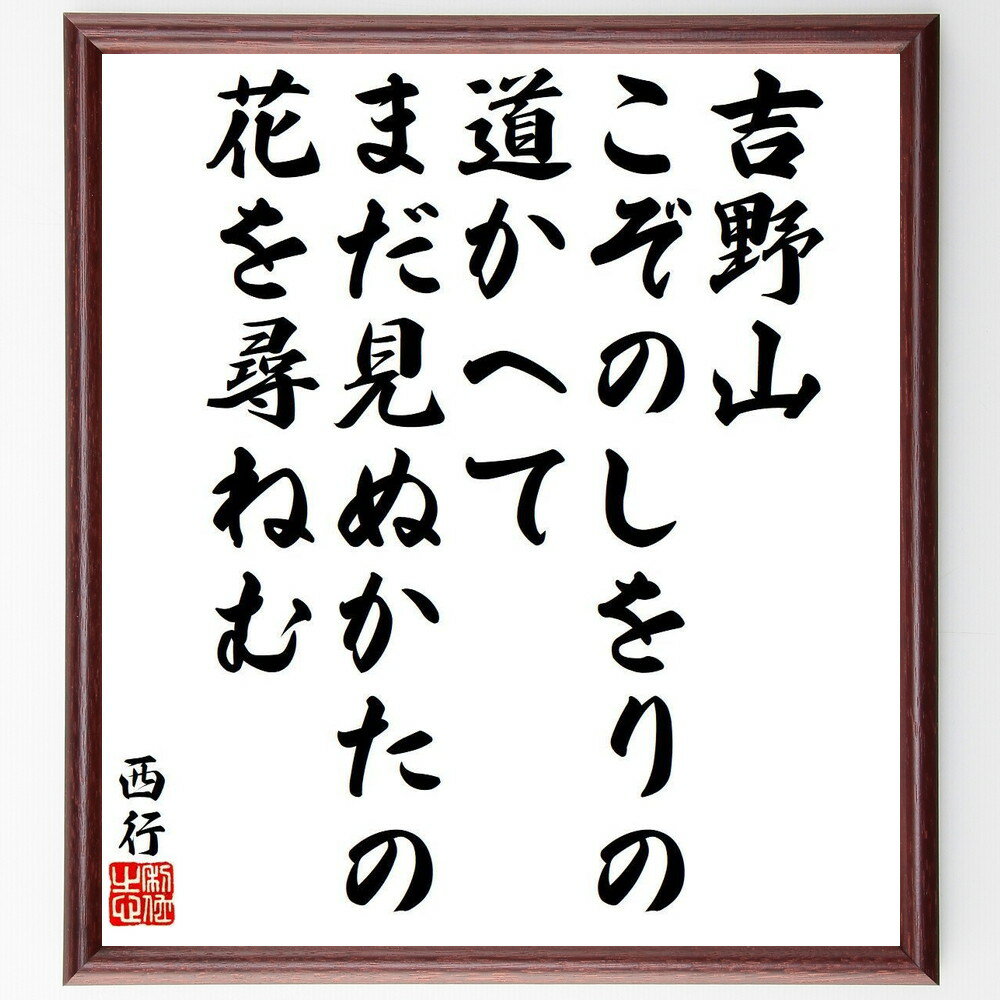 吉野山
こぞのしをりの
道かへて
まだ見ぬかたの
花を尋ねむ
西行